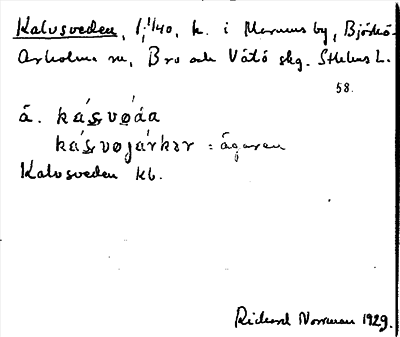 Kalvsveden, 1:1/40, h. i Marums by, Björkö-
Arholma sn, Bro och Vätö skg. Sthlms L.
58.
å. ká̱s̱vøda
ká̱s̱vøjárkar = ägaren
Kalvsveden kb.
Rickard Norrman 1929.